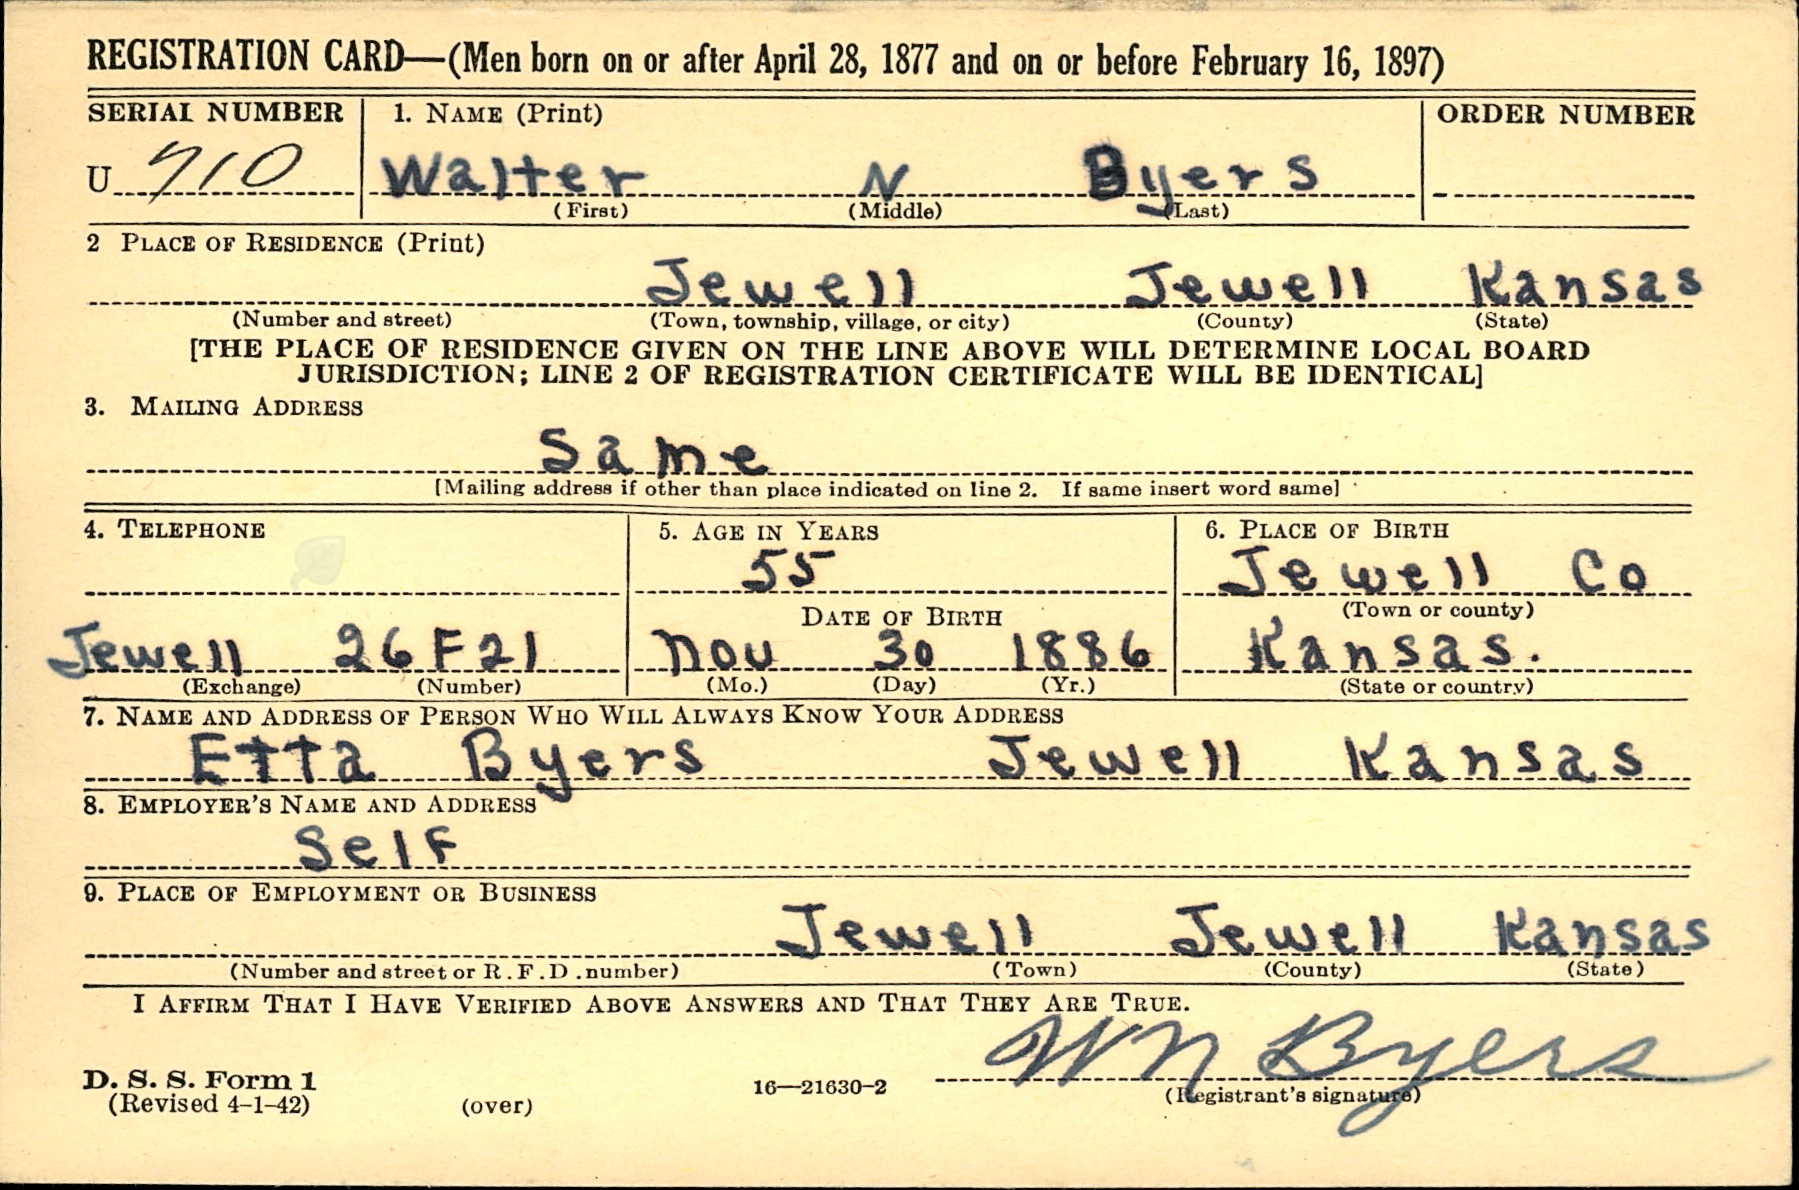 REGISTRATION CARD—(Men born on or after April 28, 1877 and on or before February 16, 1897)
SERIAL NUMBER 1. NAME (Print) ORDER NUMBER
U 710 Walter N Byers
(First) (Middle) (Last)
2 PLACE OF RESIDENCE (Print)
Jewell Jewell Kansas
(Number and street) (Town, township, village, or city) (County) (State)
[THE PLACE OF RESIDENCE GIVEN ON THE LINE ABOVE WILL DETERMINE LOCAL BOARD
JURISDICTION; LINE 2 OF REGISTRATION CERTIFICATE WILL BE IDENTICAL]
3. MAILING ADDRESS
Same
[Mailing address if other than place indicated on line 2. If same insert word same]
4. TELEPHONE 5. AGE IN YEARS 6. PLACE OF BIRTH
55 Jewell Co
DATE OF BIRTH (Town or county)
Jewell 26F21 Nov 30 1886 Kansas.
(Exchange) (Number) (Mo.) (Day) (Yr.) (State or country)
7. NAME AND ADDRESS OF PERSON WHO WILL ALWAYS KNOW YOUR ADDRESS
Etta Byers Jewell Kansas
8. EMPLOYER'S NAME AND ADDRESS
Self
9. PLACE OF EMPLOYMENT OR BUSINESS
Jewell Jewell Kansas
(Number and street or R.F.D. number) (Town) (County) (State)
I AFFIRM THAT I HAVE VERIFIED ABOVE ANSWERS AND THAT THEY ARE TRUE.
WN Byers
D. S. S. Form 1 16—21630-2 (Registrant's signature)
(Revised 4-1-42) (over)